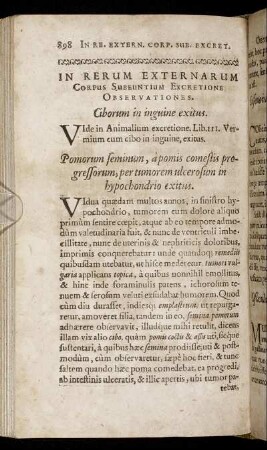 898 IN RE. EXTERN. CORP. SUB. EXCRET.
IN RERUM EXTERNARUM
CORPUS SUBEUNTIUM EXCRETIONE
OBSERVATIONES.
Ciborum in inguine exitus.
VIde in Animalium excretione. Lib. III. Ver-
mium cum cibo in inguine, exitus.
Pomorum seminum, à pomis comestis pro-
gressorum, per tumorem ulcerosum in
hypochondrio exitus.
VIdua quædam multos annos, in sinistro hy-
pochondrio, tumorem cum dolore aliquo
primùm sentire cœpit, atque ab eo tempore admo-
dùm valetudinaria fuit, & nunc de ventriculi imbe-
cillitate, nunc de uterinis & nephriticis doloribus,
imprimis conquerebatur: unde quandoq; remediis
quibusdam utebatur, ut hisce mederetur. tumori vul-
garia applicans topica, à quibus nonnihil emollitus,
& hinc inde foraminulis patens, ichorosum te-
nuem & serosum veluti exsudabat humorem. Quod
cùm diu durasset, indieq; emplastrum, ut repurga-
rent, amoveret filia, tandem in eo, semina pomorum
adhærere observavit, illudque mihi retulit, dicens
illam vix alio cibo, quàm pomis coctis & assis uti, sicque
sustentari, à quibus hæc semina prodiisse, uti & post-
modùm, cùm observaretur, sæpè hoc fieri, & tunc
saltem quando hæc poma comedebat, ea progredi,
ab intestinis ulceratis, & illic apertis, ubi tumor pa-
tebat,